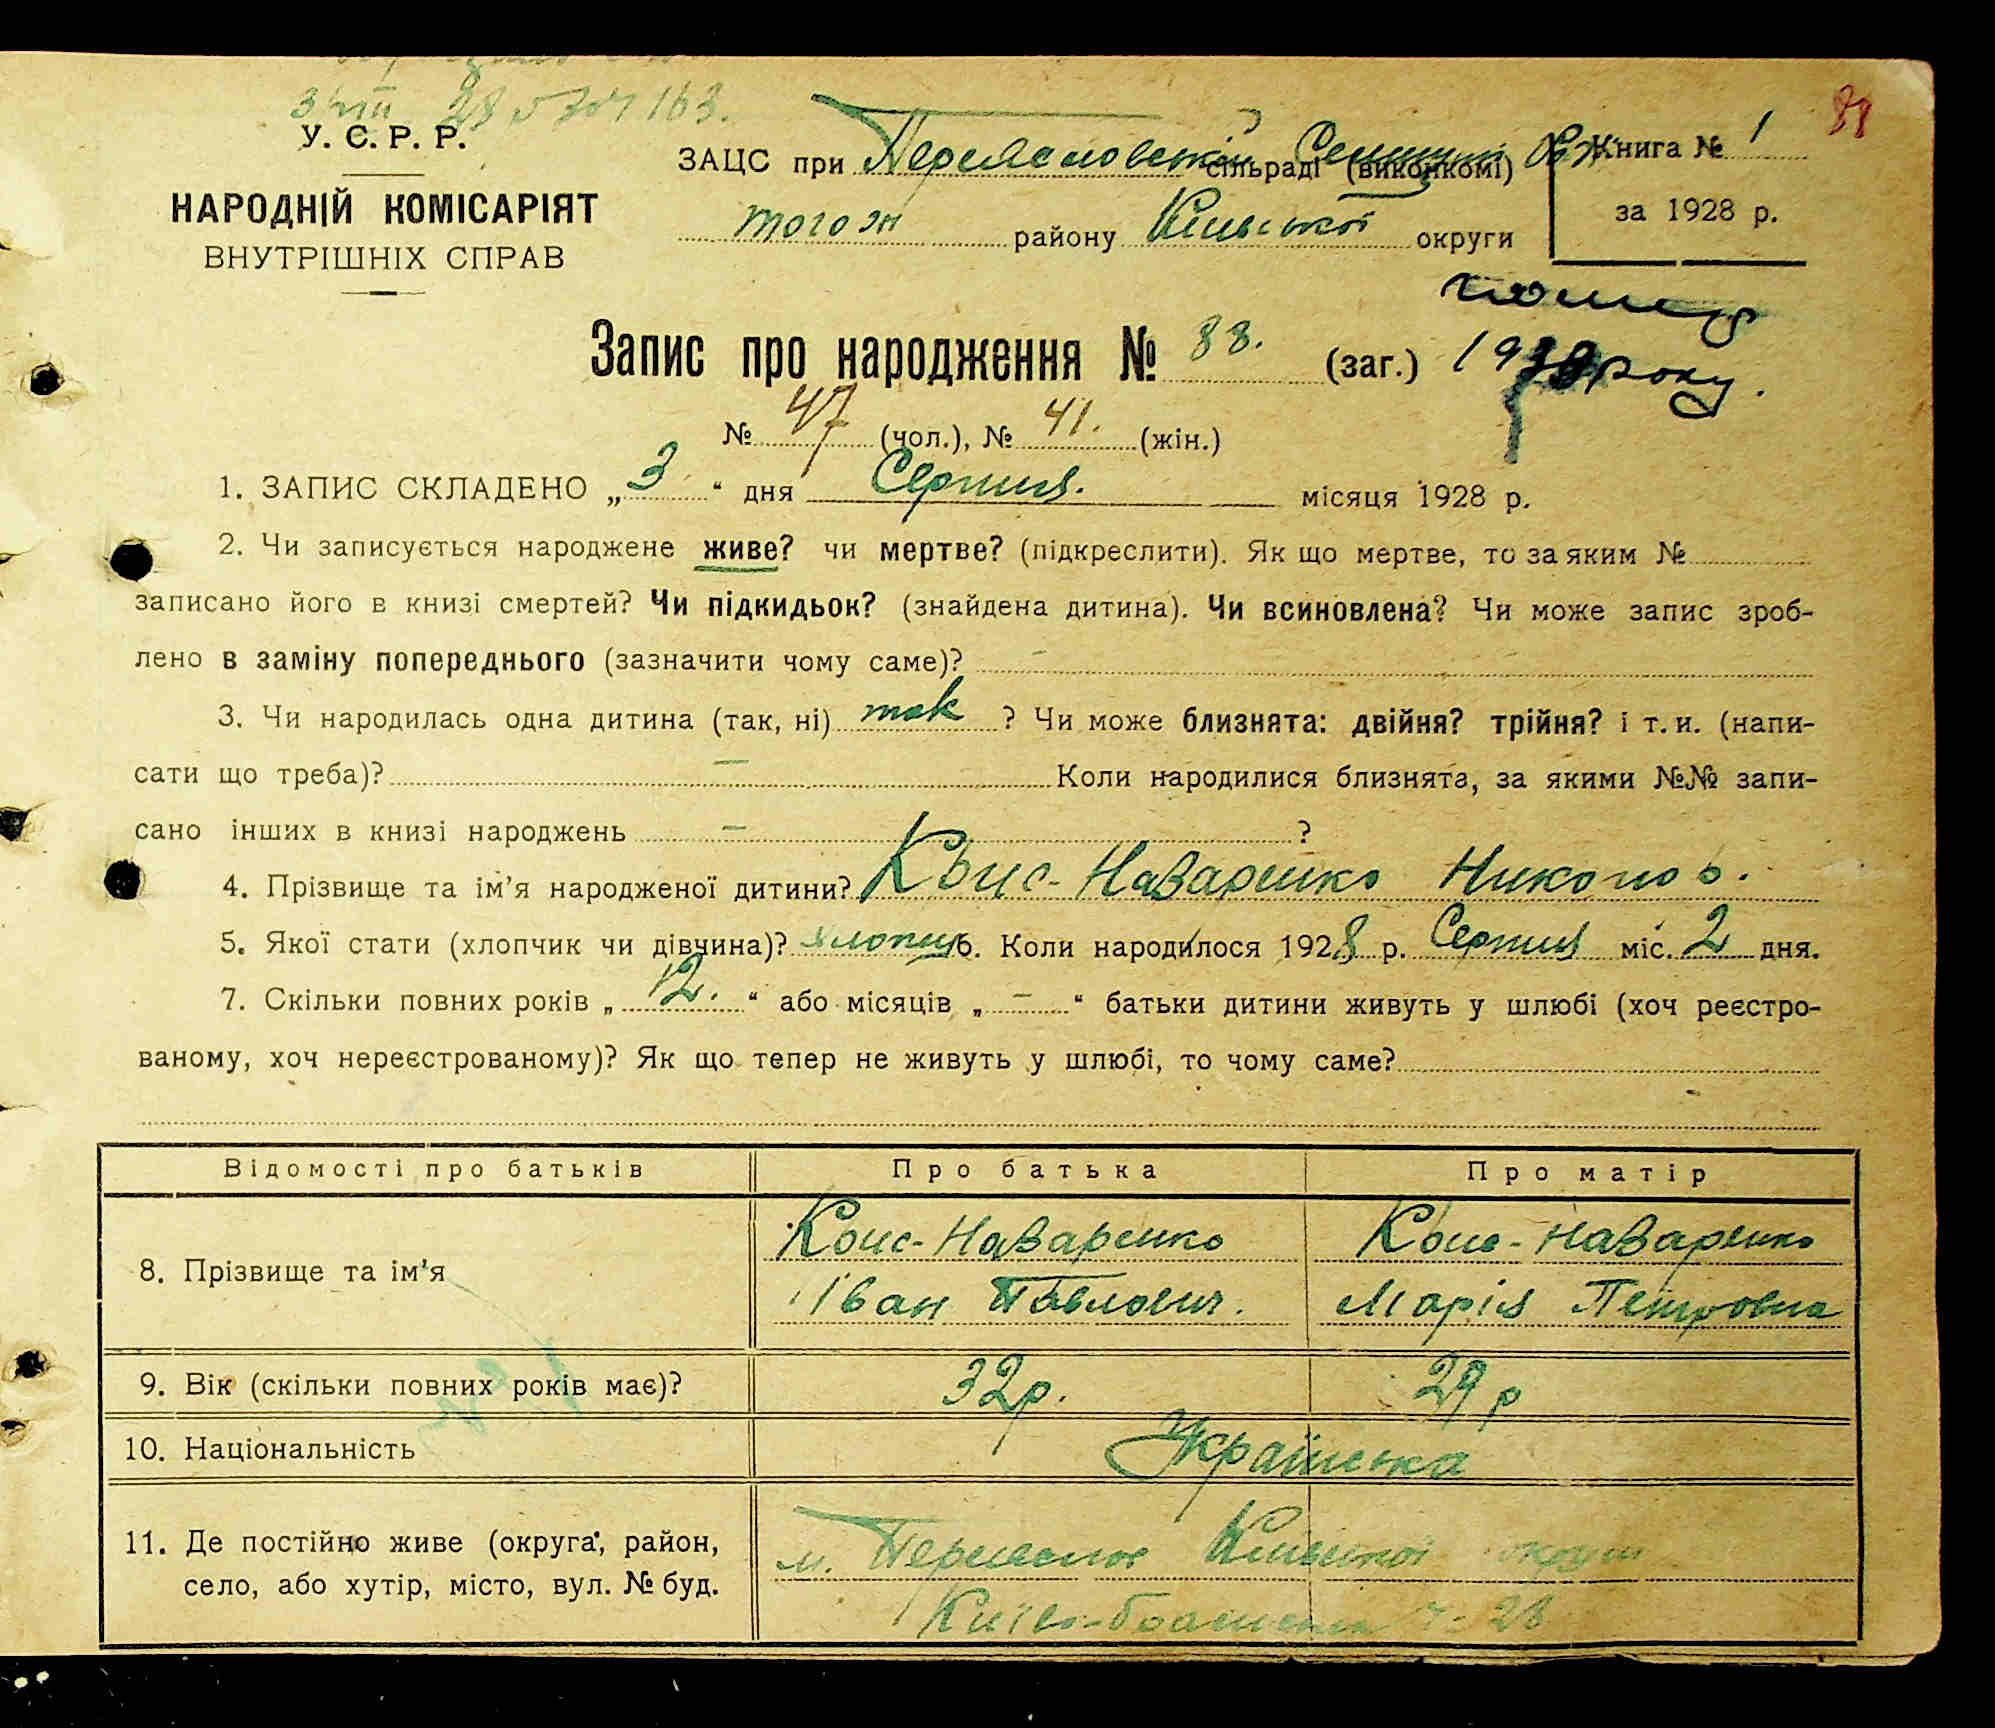 У. С. Р. Р.
НАРОДНІЙ КОМІСАРІЯТ
ВНУТРІШНІХ СПРАВ
ЗАЦС при Переяславській сільраді (виконкомі)
тогож району Київської округи
Книга № 1
за 1928 р.
88
Запис про народження № 88. (заг.)
року.
№ 47 (чол.), № 41. (жін.)
1. ЗАПИС СКЛАДЕНО „ 3 “ дня Серпня. місяця 1928 р.
2. Чи записується народжене живе? чи мертве? (підкреслити). Як що мертве, то за яким №
записано його в книзі смертей? Чи підкидьок? (знайдена дитина). Чи всиновлена? Чи може запис зроб-
лено в заміну попереднього (зазначити чому саме)? -
3. Чи народилась одна дитина (так, ні) так ? Чи може близнята: двійня? трійня? і т. и. (напи-
сати що треба)? - Коли народилися близнята, за якими №№ запи-
сано інших в книзі народжень - ?
4. Прізвище та ім'я народженої дитини? -Назаренко
5. Якої стати (хлопчик чи дівчина)? хлопець 6. Коли народилося 1928 р. Серпня міс. 2 дня.
7. Скільки повних років „ 12. “ або місяців „ - “ батьки дитини живуть у шлюбі (хоч реєстро-
ваному, хоч нереєстрованому)? Як що тепер не живуть у шлюбі, то чому саме?
Відомості про батьків Про батька Про матір
8. Прізвище та ім'я
-Назаренко -Назаренко
Іван Павлович. Марія Петровна
9. Вік (скільки повних років має)? 32р. 29 р
10. Національність Українська
11. Де постійно живе (округа, район,
село, або хутір, місто, вул. № буд.
м. Переяслов Київської округи